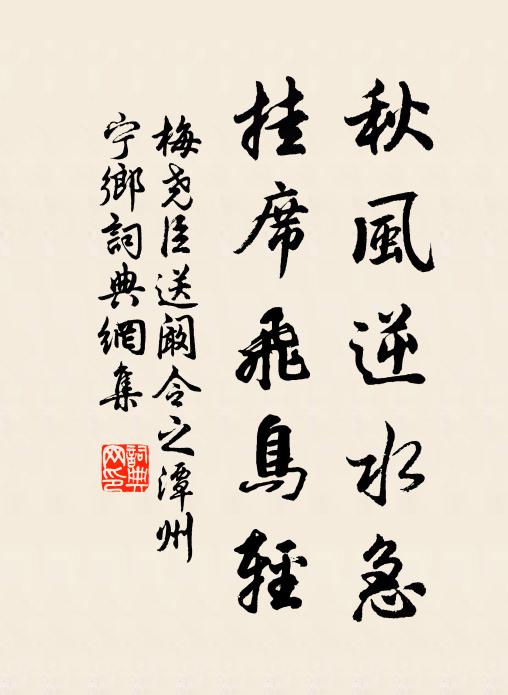 秋風逆水急
挂席飛鳥輕
梅堯臣送闞令之潭州
宁鄉詞典網集
詞典网印